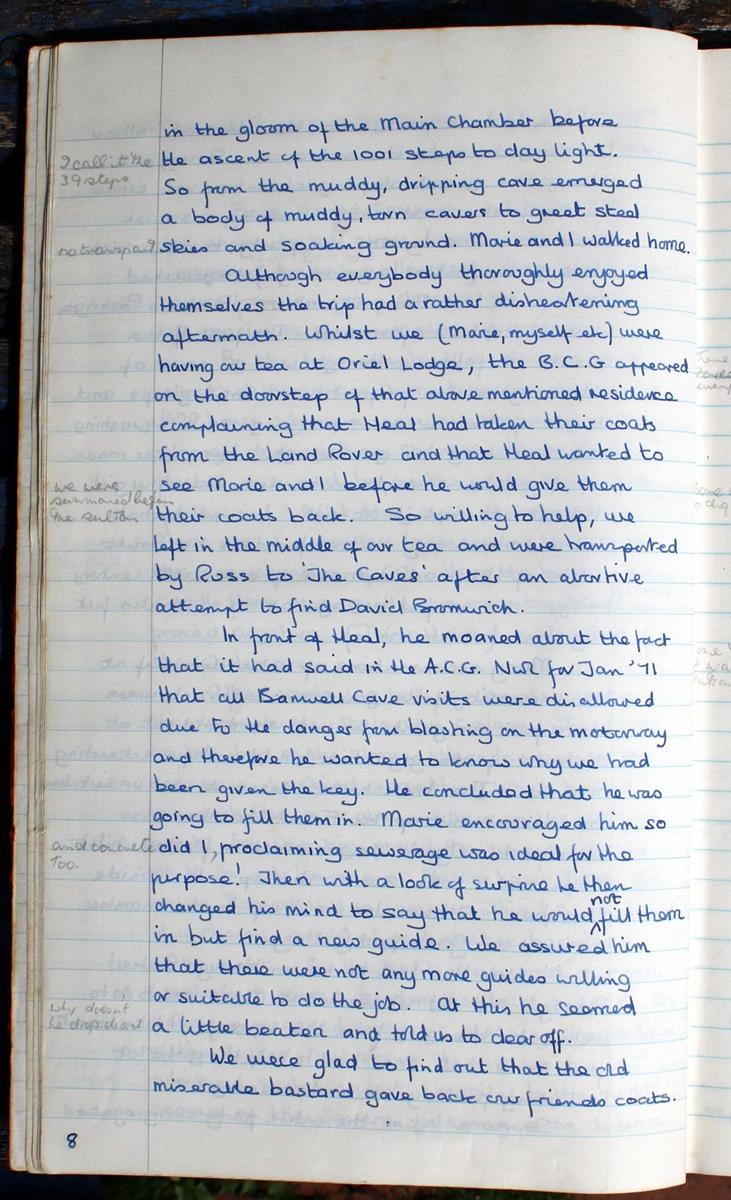 in the gloom of the Main Chamber before
I call it the
39 steps
the ascent of the 1001 steps to day light.
So from the muddy, dripping cave emerged
a body of muddy, torn cavers to greet steel
no transport?
skies and soaking ground. Marie and I walked home.
Although everybody thoroughly enjoyed
themselves the trip had a rather disheartening
aftermath. Whilst we (Marie, myself etc) were
having our tea at Oriel Lodge, the B.C.G appeared
on the doorstep of that above mentioned residence
complaining that Heal had taken their coats
from the Land Rover and that Heal wanted to
we were
summoned before
the sultan
see Marie and I before he would give them
their coats back. So willing to help, we
left in the middle of our tea and were transported
by Russ to 'The Caves' after an abortive
attempt to find David Bromwich.
In front of Heal, he moaned about the fact
that it had said in the A.C.G. NwL for Jan '71
that all Banwell Cave visits were disallowed
due to the danger from blasting on the motorway
and therefore he wanted to know why we had
been given the key. He concluded that he was
going to fill them in. Marie encouraged him so
and concrete
too.
did I, proclaiming sewerage was ideal for the
purpose! Then with a look of surprise he then
changed his mind to say that he would not fill them
in but find a new guide. We assured him
that there were not any more guides willing
or suitable to do the job. At this he seemed
why doesn't
he drop dead
a little beaten and told us to clear off.
We were glad to find out that the old
miserable bastard gave back our friends coats.
8